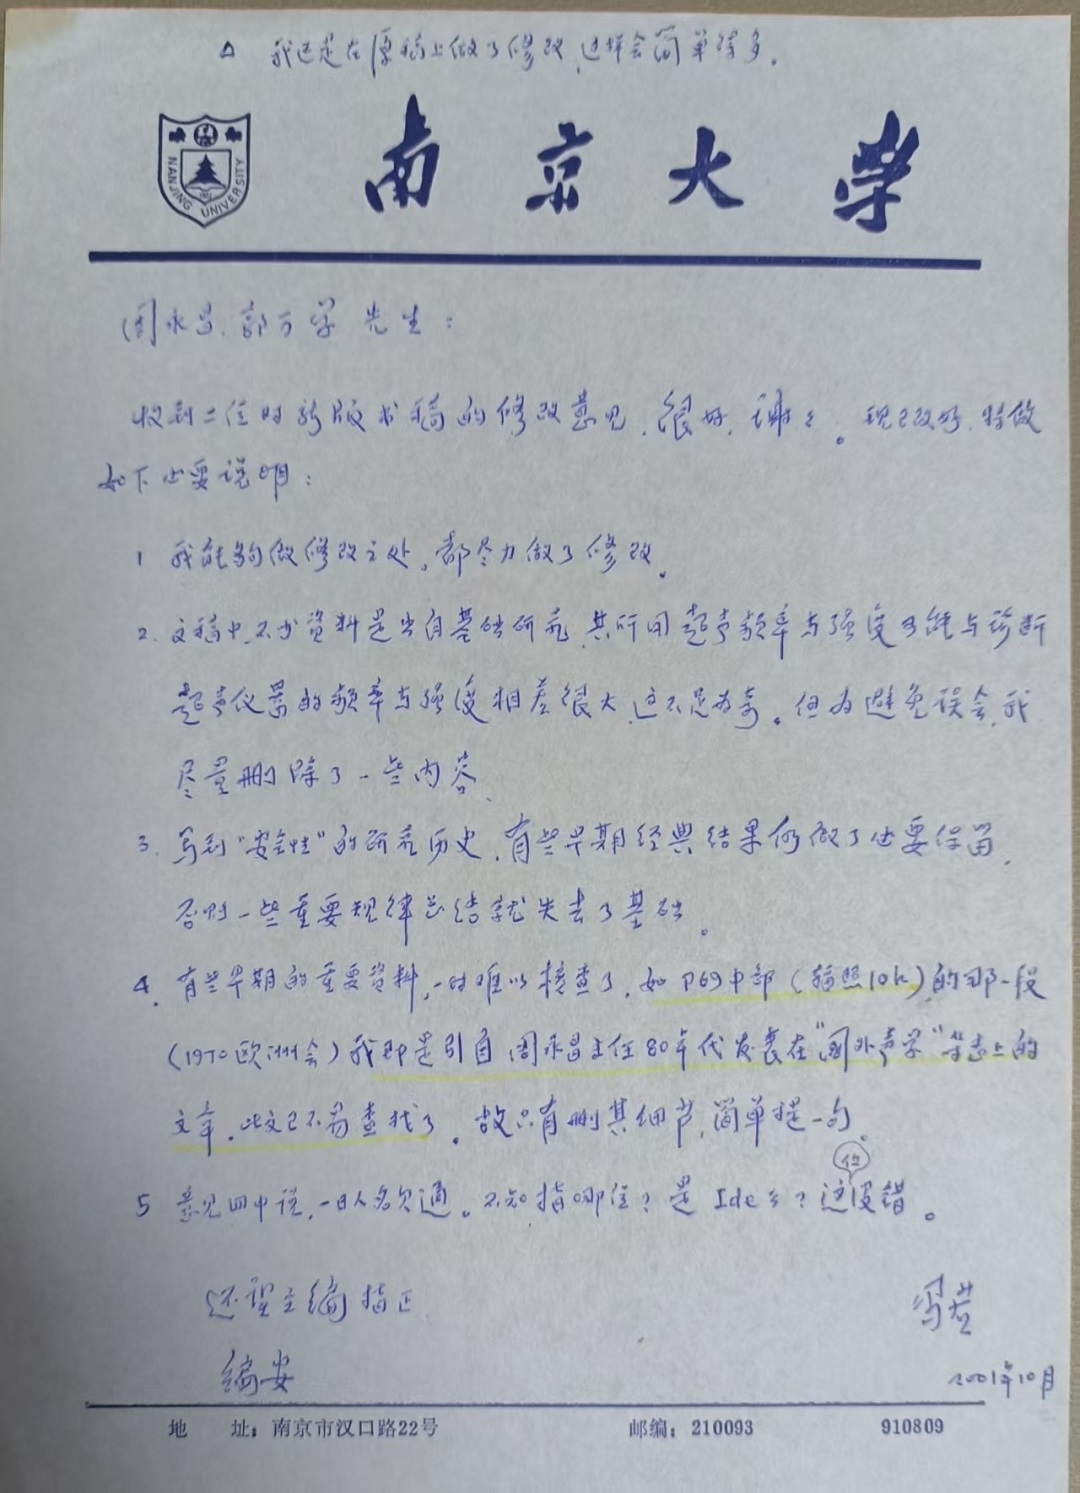 △ 我还是在原稿上做了修改,这样会简单得多。
NANJING UNIVERSITY
南京大学
周永昌、郭万学先生:
收到二位对新版书稿的修改意见,很好,谢谢。现已改好,特做
如下必要说明:
1 我能够做修改之处,都尽力做了修改。
2. 文稿中,不少资料是出自基础研究,其所用超声频率与强度可能与诊断
超声仪器的频率与强度相差很大,这不足为奇。但为避免误会,我
尽量删除了一些内容.
3. 写到"安全性"的研究历史,有些早期经典结果仍做了必要保留,
否则一些重要规律总结就失去了基础。
4. 有些早期的重要资料,一时难以核查了,如P69中部(辐照10h)的那一段
(1970欧洲会)我即是引自周永昌主任80年代发表在"国外声学"杂志上的
文章,此文已不易查找了。故只有删其细节,简单提一句。
5 意见四中说,一日人名欠通。不知指哪位?是Ide么?这位没错。
还望主编指正
编安
冯若
2001年10月
地 址:南京市汉口路22号 邮编:210093 910809